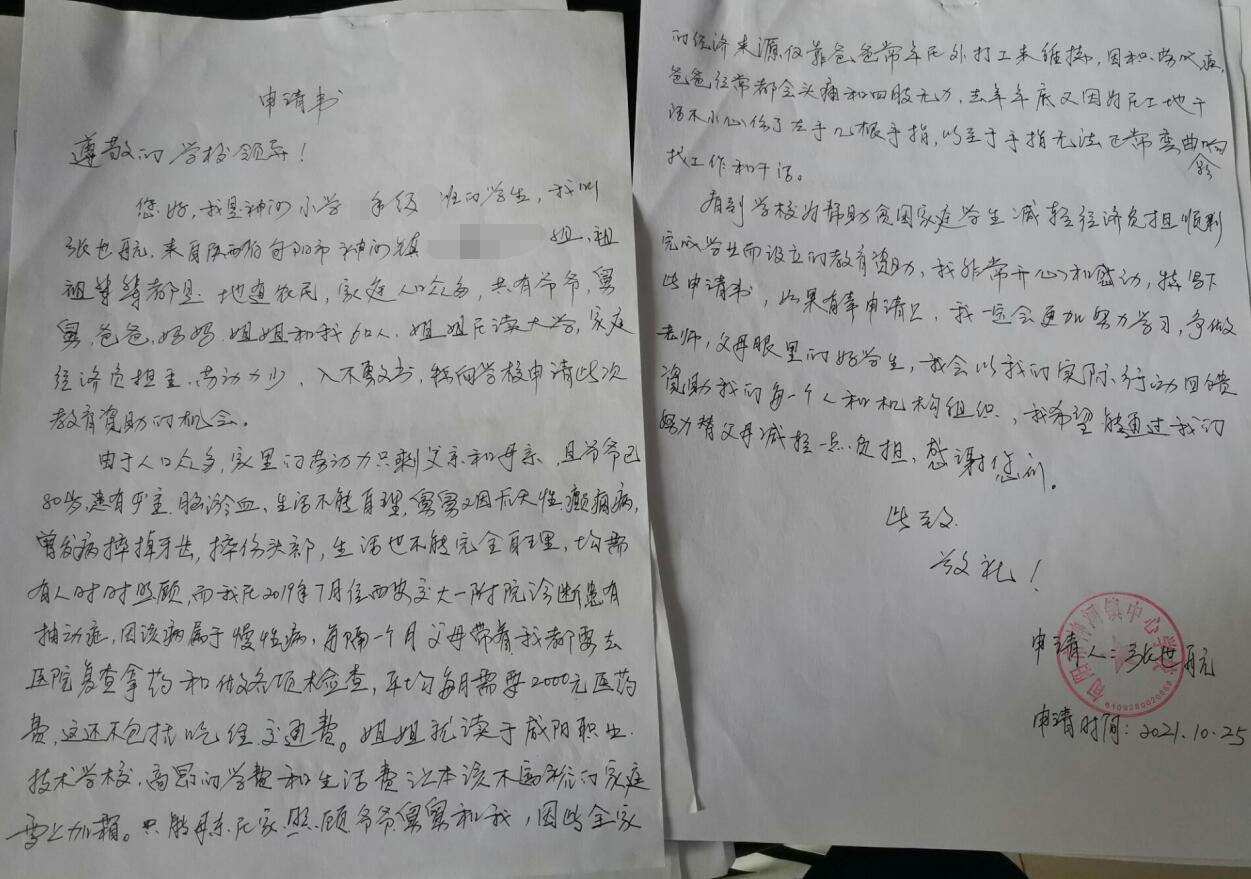 申请书
尊敬的学校领导！
您好，我是神河小学 年级 班的学生，我叫
张世航，来自陕西省旬阳市神河镇 组，祖
祖辈辈都是地道农民，家庭人口众多，共有爷爷，舅
舅，爸爸，妈妈，姐姐和我6口人，姐姐在读大学，家庭
经济负担重，劳动力少，入不敷出，特向学校申请此次
教育资助的机会。
由于人口众多，家里的劳动力只剩父亲和母亲，且爷爷已
80岁，患有严重脑淤血，生活不能自理，舅舅又因先天性癫痫病，
曾发病摔掉牙齿，摔伤头部，生活也不能完全自理，均需
有人时时照顾，而我在2019年7月住西安交大一附院诊断患有
抽动症，因该病属于慢性病，每隔一个月父母带着我都要去
医院复查拿药和做各项术检查，平均每月需要2000元医药
费，这还不包括吃住交通费。姐姐就读于咸阳职业
技术学校，高昂的学费和生活费让本该不富裕的家庭
雪上加霜。只能母亲在家照顾爷爷舅舅和我，因此全家
的经济来源仅靠爸爸常年在外打工来维持，因积劳成疾，
爸爸经常都会头痛和四肢无力，去年年底又因为在工地干
活不小心伤了左手几根手指，以至于手指无法正常弯曲影响
找工作和干活。
看到学校为帮助贫困家庭学生减轻经济负担顺利
完成学业而设立的教育资助，我非常开心和感动，特写下
此申请书，如果有幸申请上，我一定会更加努力学习，争做
老师，父母眼里的好学生，我会以我的实际行动回馈
资助我的每一个人和机构组织，我希望能通过我的
努力替父母减轻一点负担，感谢您们。
此致
敬礼！
申请人：张世航
申请时间：2021.10.25
旬阳市神河镇中心学校
6109280020868